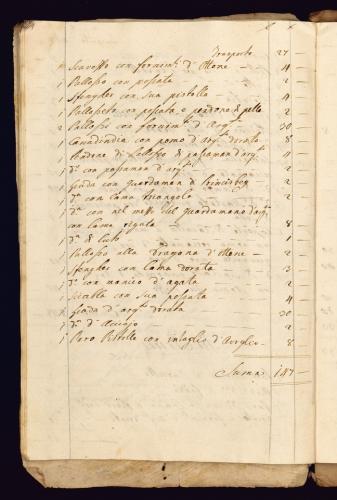 Trasporto 27 —
Scavezzo con fornim.ti d'Ottone — 4 —
1 Pallosso con possata — 2 —
1 con sua pistolla — 4 —
1 Pallossetto con possata e pendone di pelle 2 —
2 Pallossi con fornim.ti d'Arg.to — 30 —
1 Canadindia con pomo d'arg.to dorato — 8 —
di Pallosso di passaman d'arg.to 4 —
1 d.o con passaman d'arg.to — 2 —
1 spada con guardaman di — 2 —
1 d.o con lama triangola — 2 —
1 d.o con nel mezzo del guardamano d'arg.to
con lama rigata — 8 —
1 d.o di lutto — 1 —
1 Pallosso alla Dragona d'Ottone — 2 —
1 con lama dorata — 3 —
1 d.o con manico d'agata — 2 —
1 con sua possata — 4 —
1 Spada d'arg.to dorata — 30 —
1 d.a d'Acciajo — 2 —
1 Paro Pistolle con intaglio d' — 8 —
Suma 147 —